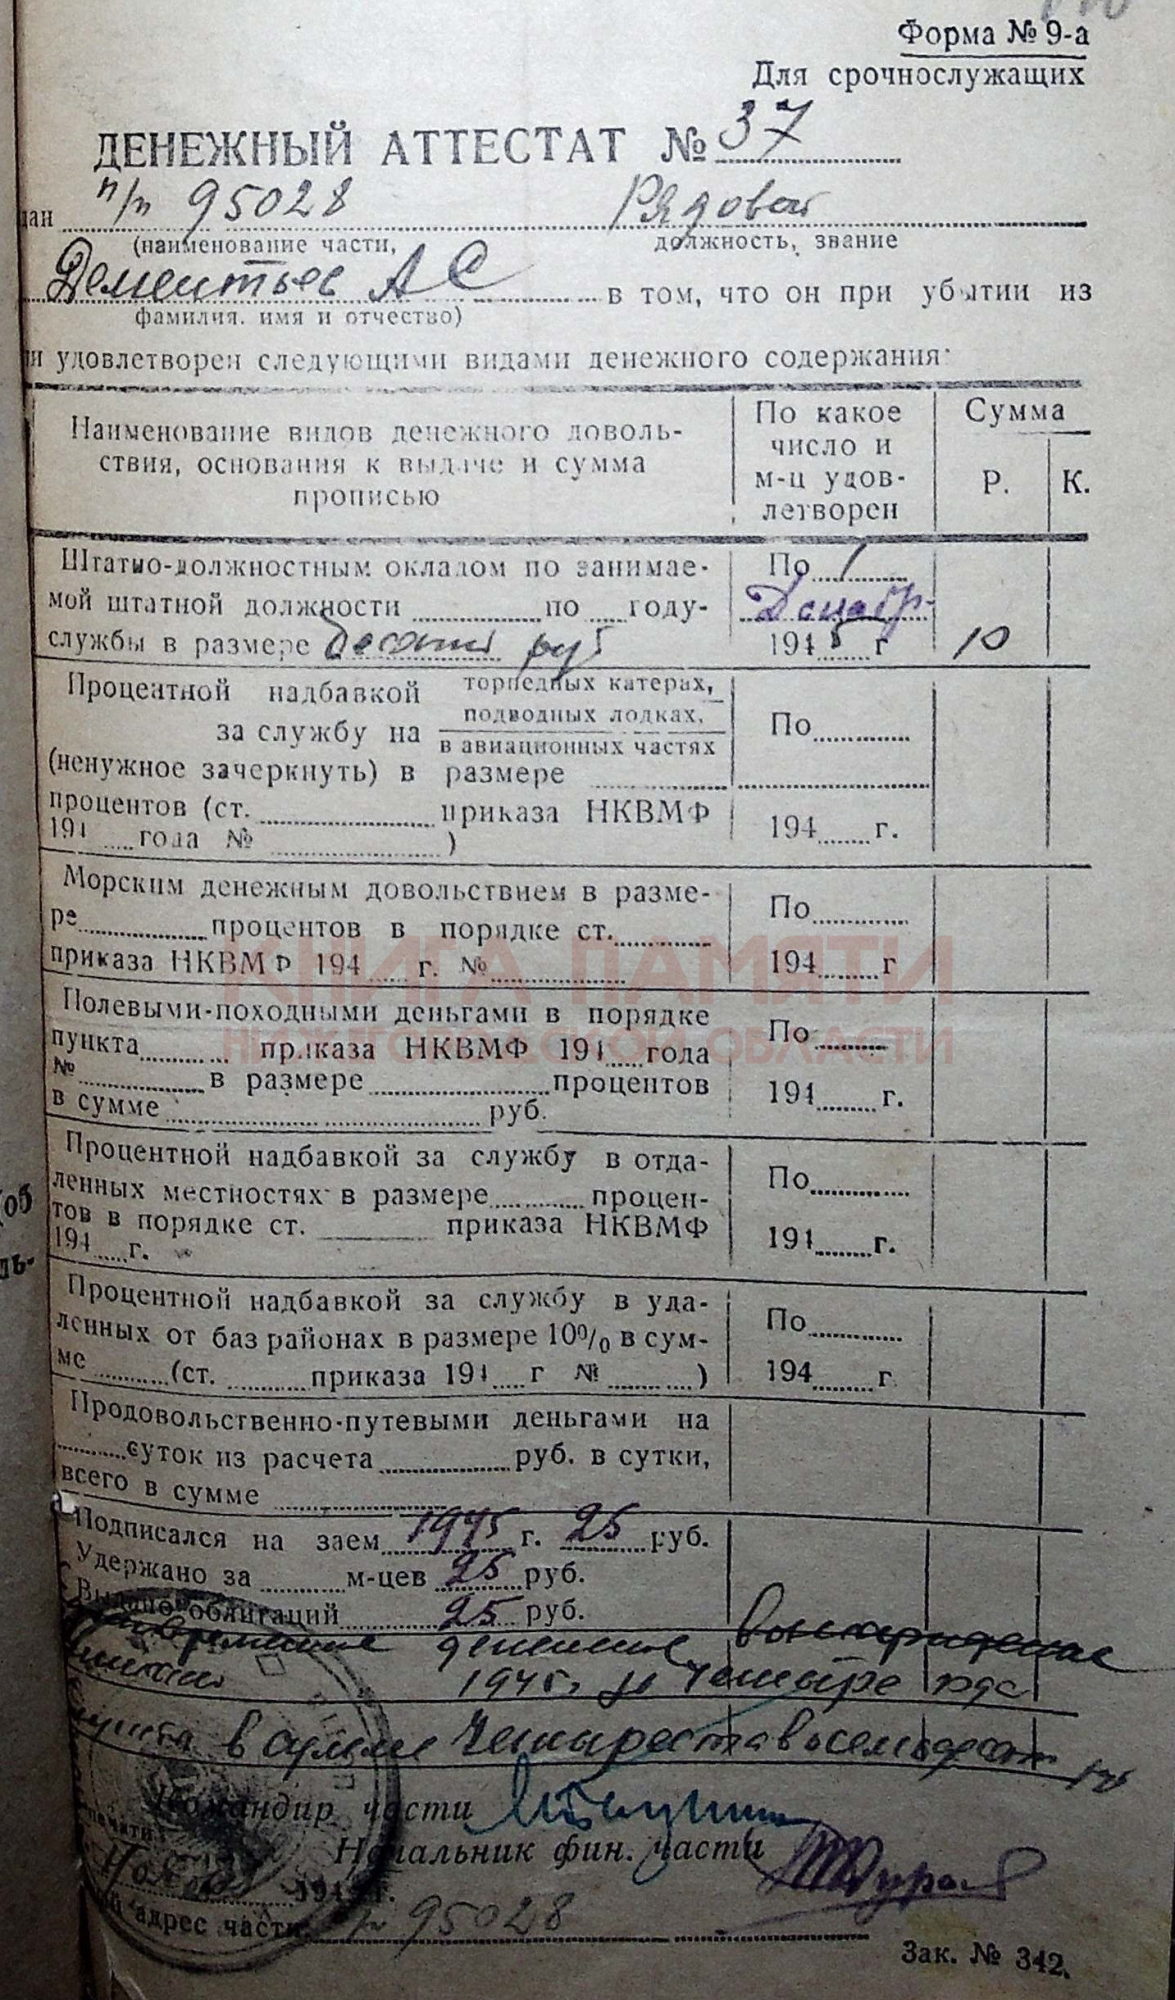 Форма № 9-а
Для срочнослужащих
ДЕНЕЖНЫЙ АТТЕСТАТ № 37
дан п/п 95028 Рядовой
(наименование части, должность, звание
Дементьев А С в том, что он при убытии из
фамилия, имя и отчество)
и удовлетворен следующими видами денежного содержания:
Наименование видов денежного доволь-
ствия, основания к выдаче и сумма
прописью
По какое
число и
м-ц удов-
летворен
Сумма
Р. К.
Штатно-должностным окладом по занимае-
мой штатной должности по году-
службы в размере десять руб
По 1
Декабр
1945 г
10
Процентной надбавкой торпедных катерах,
за службу на подводных лодках,
в авиационных частях
(ненужное зачеркнуть) в размере
процентов (ст. приказа НКВМФ
194 года № )
По
194 г.
Морским денежным довольствием в разме-
ре процентов в порядке ст.
приказа НКВМФ 194 г. №
По
194 г
КНИГА ПАМЯТИ
НИЖЕГОРОДСКОЙ ОБЛАСТИ
Полевыми-походными деньгами в порядке
пункта приказа НКВМФ 194 года
№ в размере процентов
в сумме руб.
По
194 г.
Процентной надбавкой за службу в отда-
ленных местностях в размере процен-
тов в порядке ст. приказа НКВМФ
194 г.
По
194 г.
Процентной надбавкой за службу в уда-
ленных от баз районах в размере 10% в сум-
ме (ст. приказа 194 г № )
По
194 г
Продовольственно-путевыми деньгами на
суток из расчета руб. в сутки,
всего в сумме
Подписался на заем 1945 г. 25 руб.
Удержано за м-цев 25 руб.
Выдано облигаций 25 руб.
денежное вознаграждение
1945г за четыре года
в сумме Четыреста восемьдесят
Командир части
Начальник фин. части
194 г.
адрес части п/п 95028
Зак. № 342.